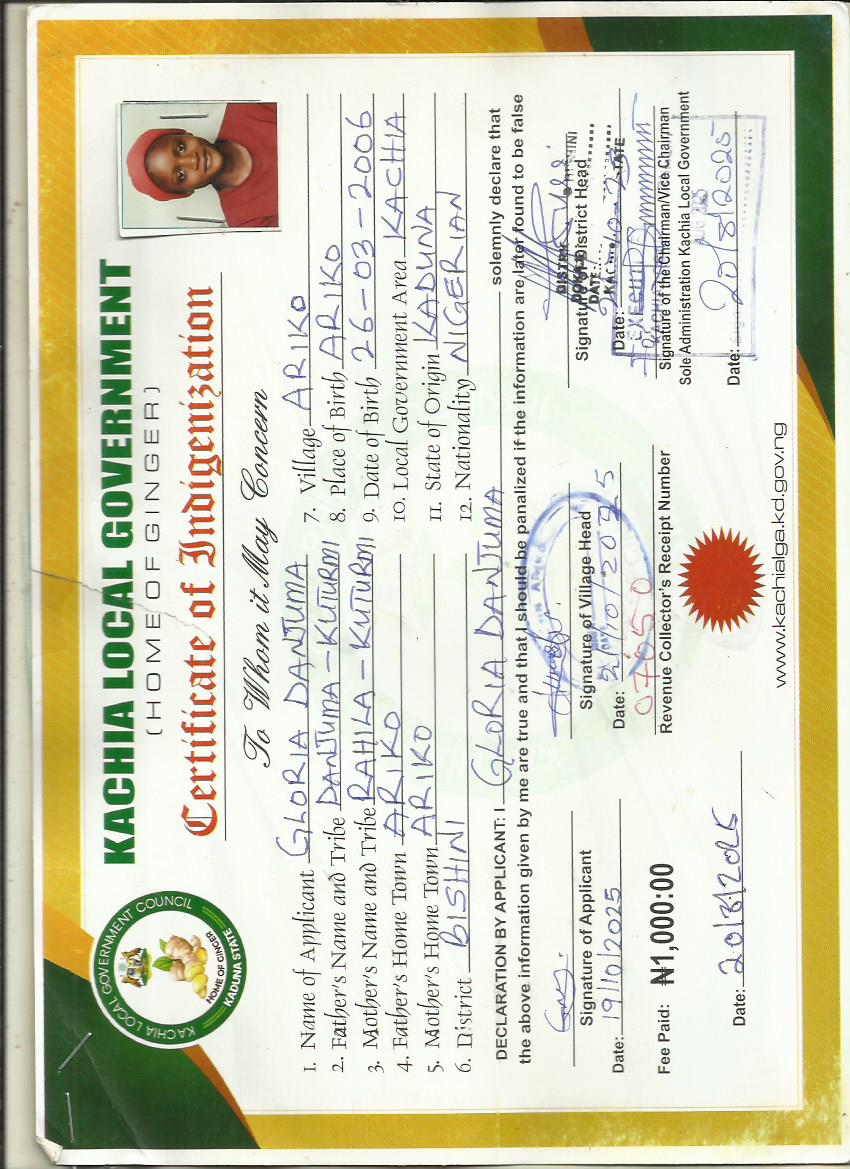 KACHIA LOCAL GOVERNMENT COUNCIL
HOME OF GINGER
KADUNA STATE
KACHIA LOCAL GOVERNMENT
(HOME OF GINGER)
Certificate of Indigenization
To Whom it May Concern
1. Name of Applicant GLORIA DANJUMA
2. Father's Name and Tribe DANJUMA - KUTURMI
3. Mother's Name and Tribe RAHILA - KUTURMI
4. Father's Home Town ARIKO
5. Mother's Home Town ARIKO
6. District BISHINI
7. Village ARIKO
8. Place of Birth ARIKO
9. Date of Birth 26-03-2006
10. Local Government Area KACHIA
11. State of Origin KADUNA
12. Nationality NIGERIAN
DECLARATION BY APPLICANT: I GLORIA DANJUMA solemnly declare that
the above information given by me are true and that I should be panalized if the information are later found to be false
Signature of Applicant
Date: 19/10/2025
Fee Paid: ₦1,000:00
Date: 20/8/2025
Signature of Village Head
Date:
07650
Revenue Collector's Receipt Number
Signature of District Head
Date:
Signature of the Chairman/Vice Chairman
Sole Administration Kachia Local Government
Date: 20/8/2025
www.kachialga.kd.gov.ng